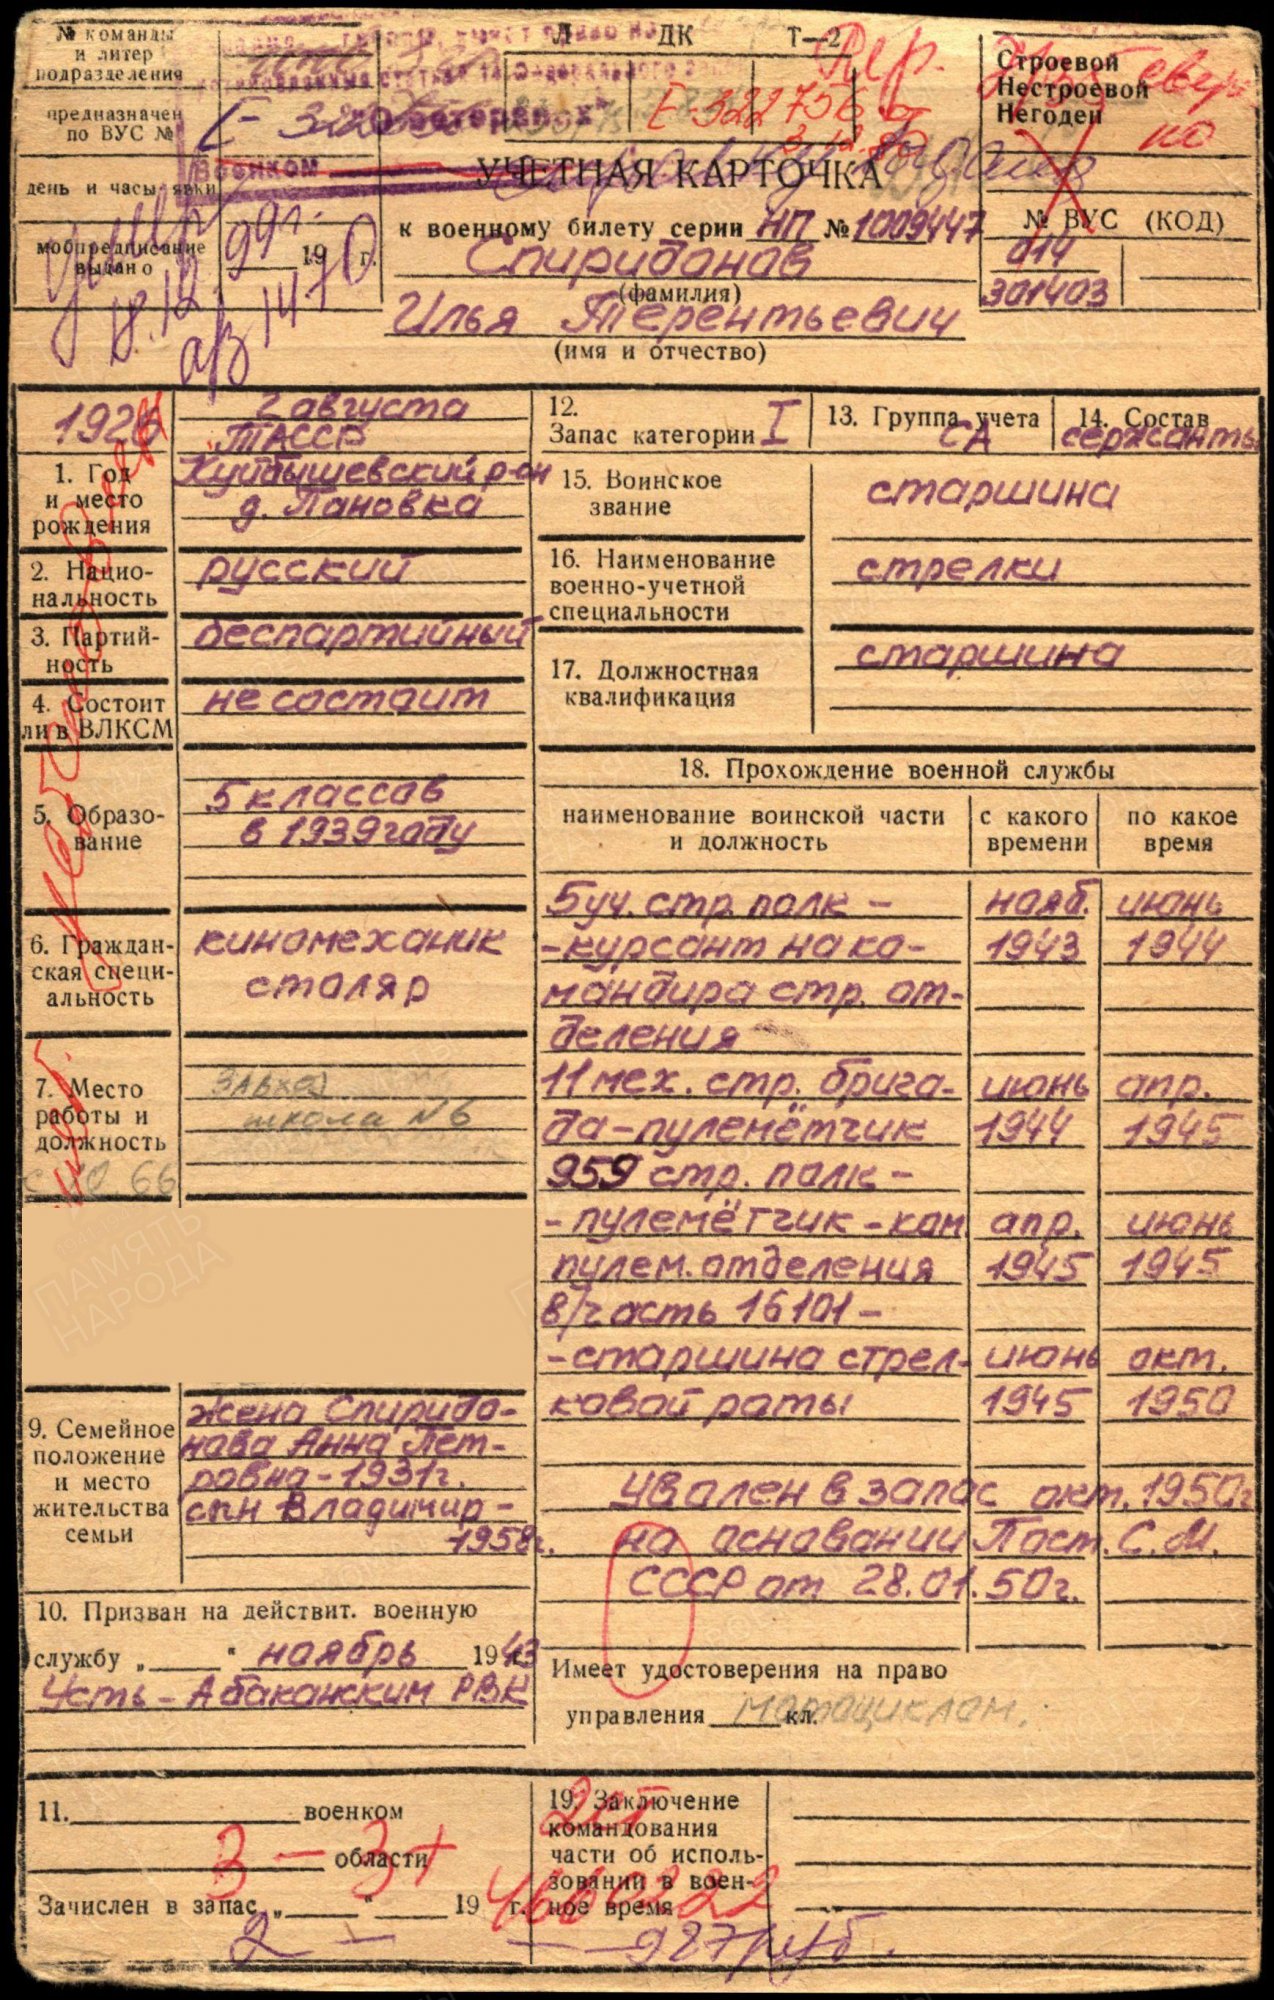 № команды
и литер
подразделения
Л ДК Т—2
Строевой
Нестроевой
Негоден
предназначен
по ВУС №
Е-
"О ветеранах"
Е 322756
Военком
УЧЕТНАЯ КАРТОЧКА
день и часы явки
к военному билету серии НП № 1009447
№ ВУС (КОД)
014
301403
мобпредписание
выдано
19 г.
умер
18.12.99г.
а/з 1470
Спиридонов
(фамилия)
Илья Терентьевич
(имя и отчество)
1926
2 августа
ТАССР
Куйбышевский р-он
д. Пановка
1. Год
и место
рождения
2. Нацио-
нальность
русский
3. Партий-
ность
беспартийный
4. Состоит
ли в ВЛКСМ
не состоит
5. Образо-
вание
5 классов
в 1939 году
6. Граждан-
ская специ-
альность
киномеханик
столяр
7. Место
работы и
должность
завхоз
школа №6
с 10 66
ПАМЯТЬ
НАРОДА
9. Семейное
положение
и место
жительства
семьи
жена Спиридо-
нова Анна Пет-
ровна-1931г.
сын Владимир-
1958г.
10. Призван на действит. военную
службу „ “ ноябрь 1943
Усть-Абаканским РВК
11. военком
области
3 — 3+
Зачислен в запас „ “ 19 г.
12.
Запас категории I
13. Группа учета
СА
14. Состав
сержанты
15. Воинское
звание
старшина
16. Наименование
военно-учетной
специальности
стрелки
17. Должностная
квалификация
старшина
18. Прохождение военной службы
наименование воинской части
и должность
с какого
времени
по какое
время
5 уч. стр. полк - нояб. июнь
-курсант на ко- 1943 1944
мандира стр. от-
деления
11 мех. стр. брига- июнь апр.
да-пулемётчик 1944 1945
959 стр. полк-
-пулемётчик-ком. апр. июнь
пулем. отделения 1945 1945
в/часть 16101-
-старшина стрел- июнь окт.
ковой роты 1945 1950
Уволен в запас окт. 1950г
на основании Пост. С.М.
СССР от 28.01.50г.
Имеет удостоверения на право
управления мотоциклом. кл.
19. Заключение
командования
части об исполь-
зовании в воен-
ное время
4660222
2 — — 987 руб.